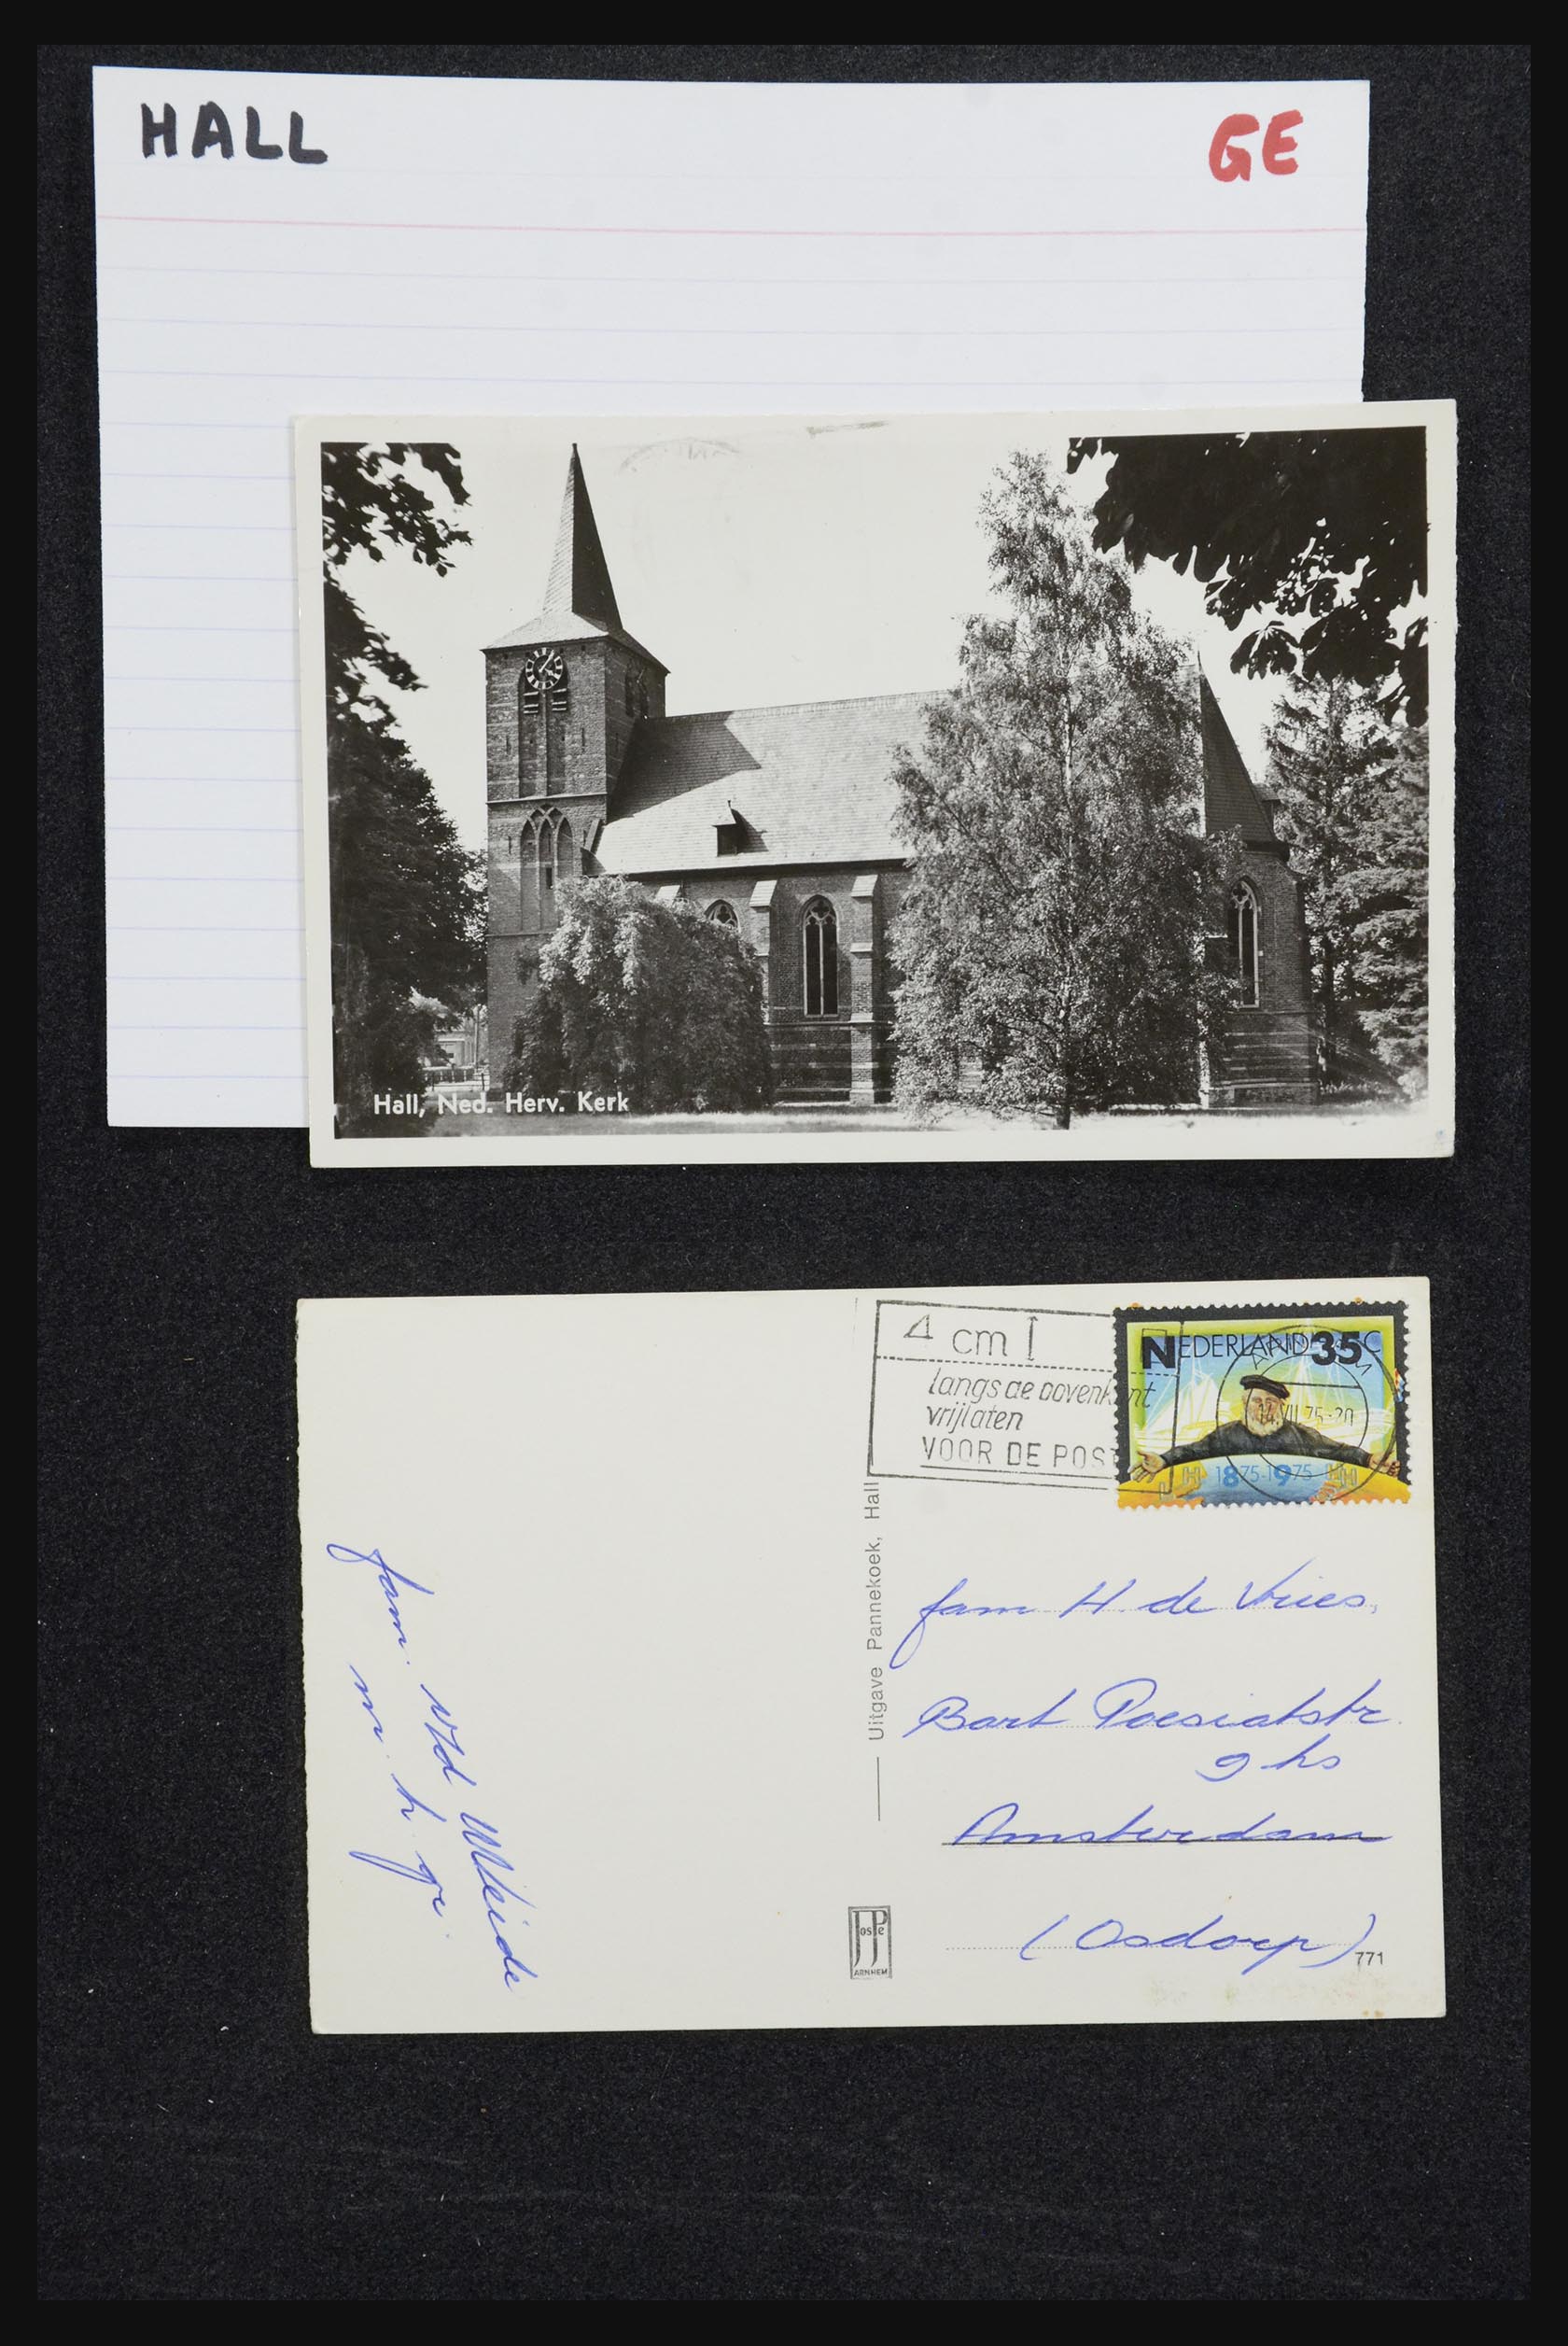 HALL
GE
Hall, Ned. Herv. Kerk
4 cm
langs de bovenkant
vrijlaten
VOOR DE POST
NEDERLAND 35 C
14.VII.75-20
1875-1975
Uitgave Pannekoek, Hall
fam. v/d Weide
m. h. gr.
fam H. de Vries,
Bart Poesiatstr.
9 hs
Amsterdam
(Osdorp)
JosPé
ARNHEM
771